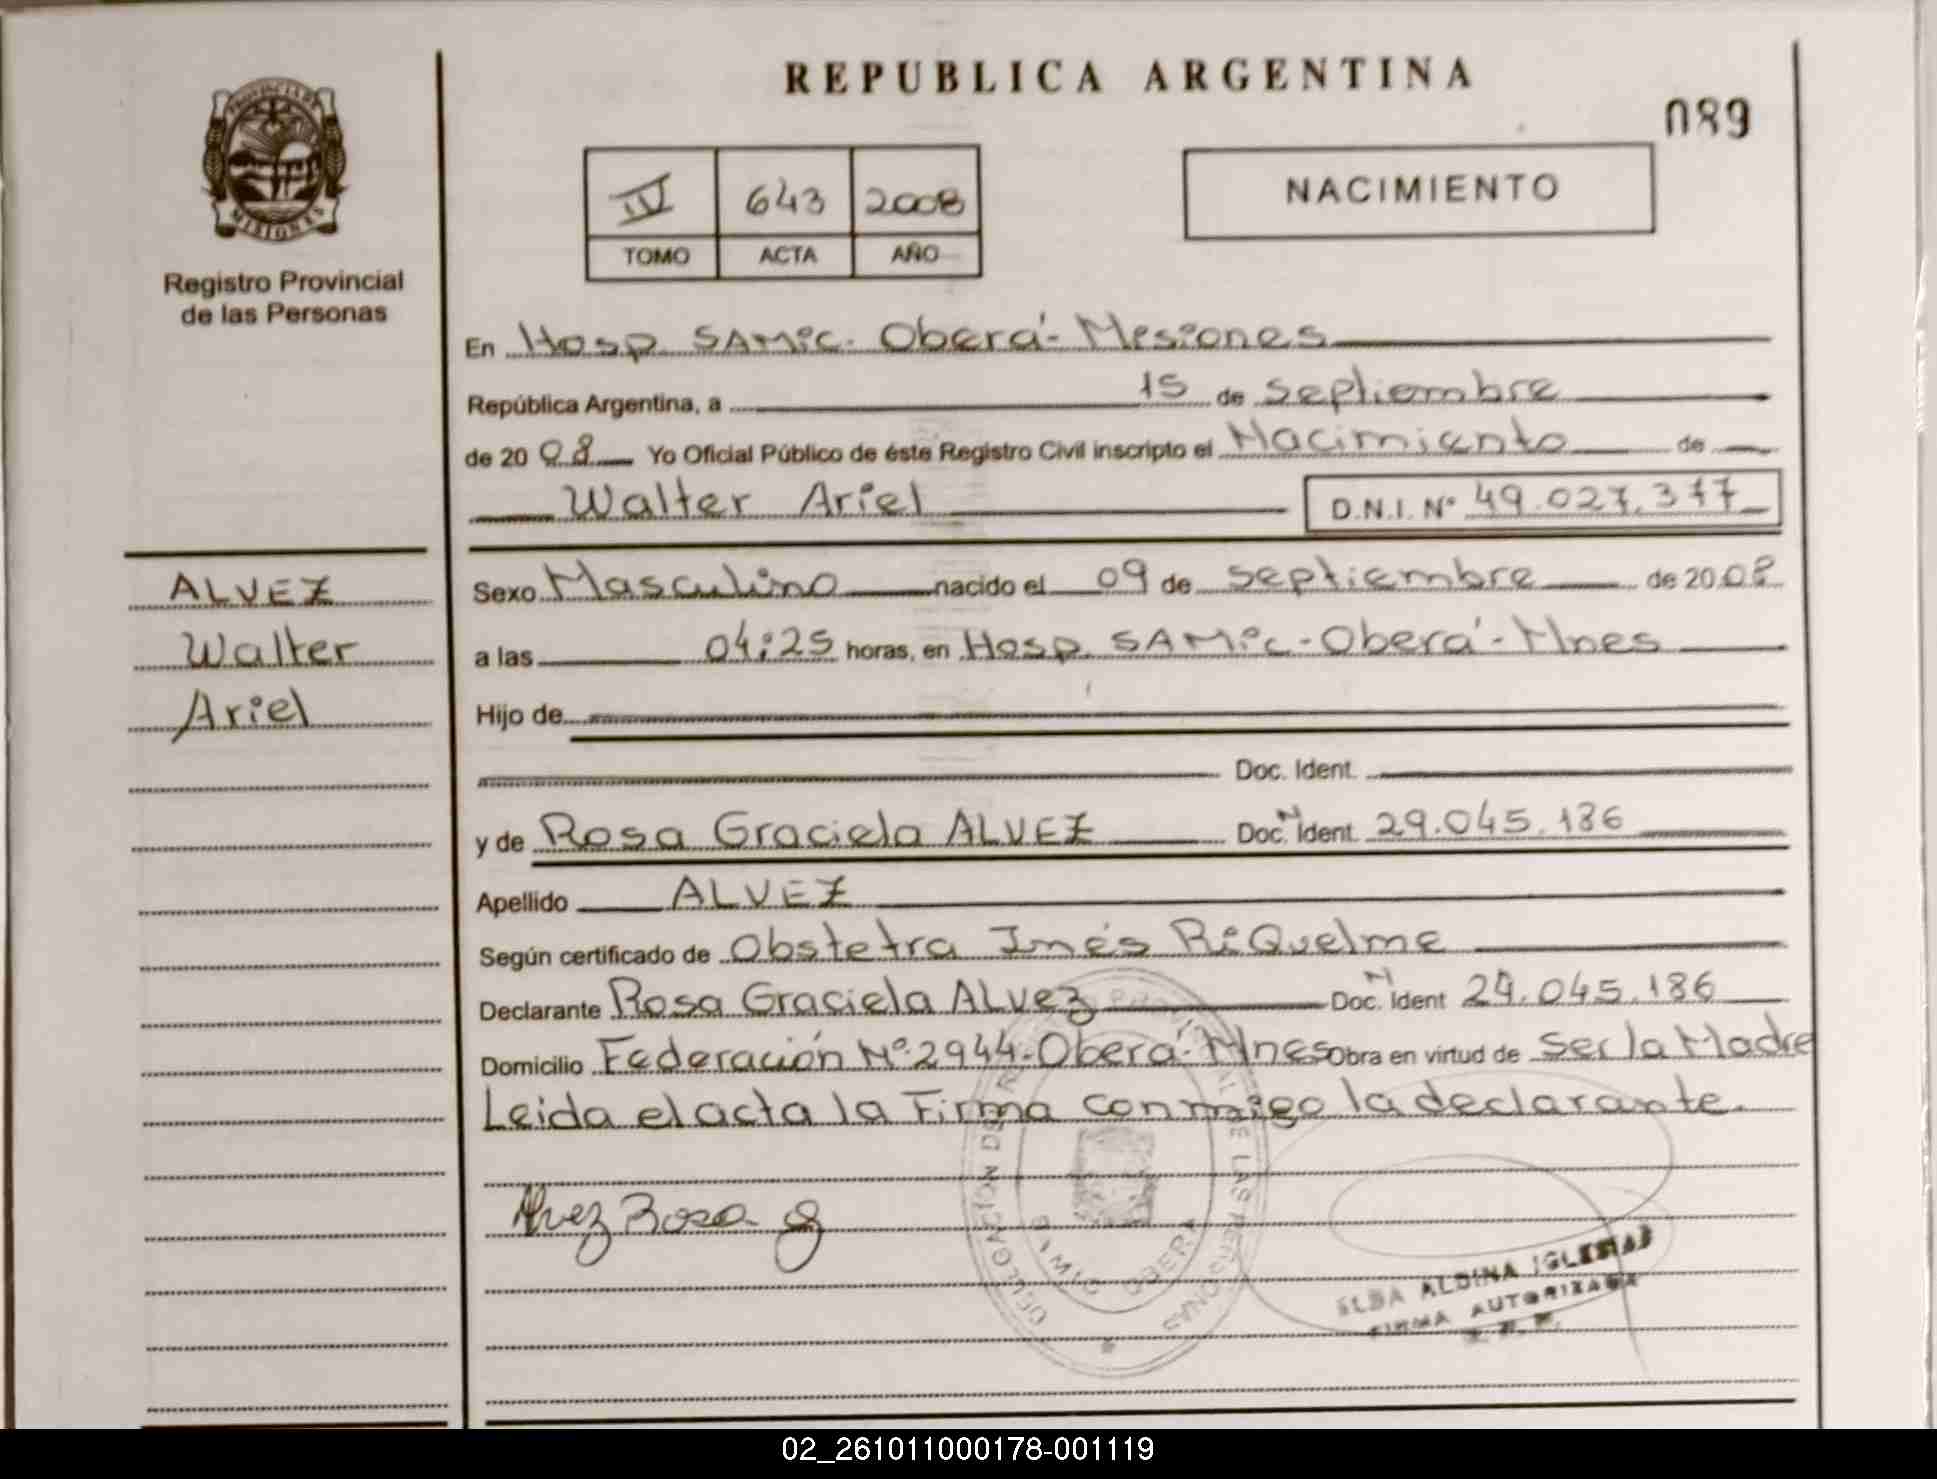 REPUBLICA ARGENTINA
089
PROVINCIA DE
MISIONES
Registro Provincial
de las Personas
IV 643 2008
TOMO ACTA AÑO
NACIMIENTO
En Hosp. SAMic. Oberá - Misiones
República Argentina, a 15 de septiembre
de 2008 Yo Oficial Público de éste Registro Civil inscripto el Nacimiento de
Walter Ariel D.N.I. Nº 49.027.377
ALVEZ
Walter
Ariel
Sexo Masculino nacido el 09 de septiembre de 2008
a las 04:25 horas, en Hosp. SAMic - Oberá - Mnes
Hijo de
Doc. Ident.
y de Rosa Graciela ALVEZ Doc. N Ident. 29.045.186
Apellido ALVEZ
Según certificado de Obstetra Inés RiQuelme
Declarante Rosa Graciela ALVez Doc. N Ident 29.045.186
Domicilio Federación Nº 2944 - Oberá - Mnes Obra en virtud de ser la Madre
Leida el acta la Firma conmigo la declarante.
Alvez Rosa g
DELEGACION DEL REGISTRO PROVINCIAL DE LAS PERSONAS
OBERA
ELBA ALDINA IGLESIAS
FIRMA AUTORIZADA
02_261011000178-001119